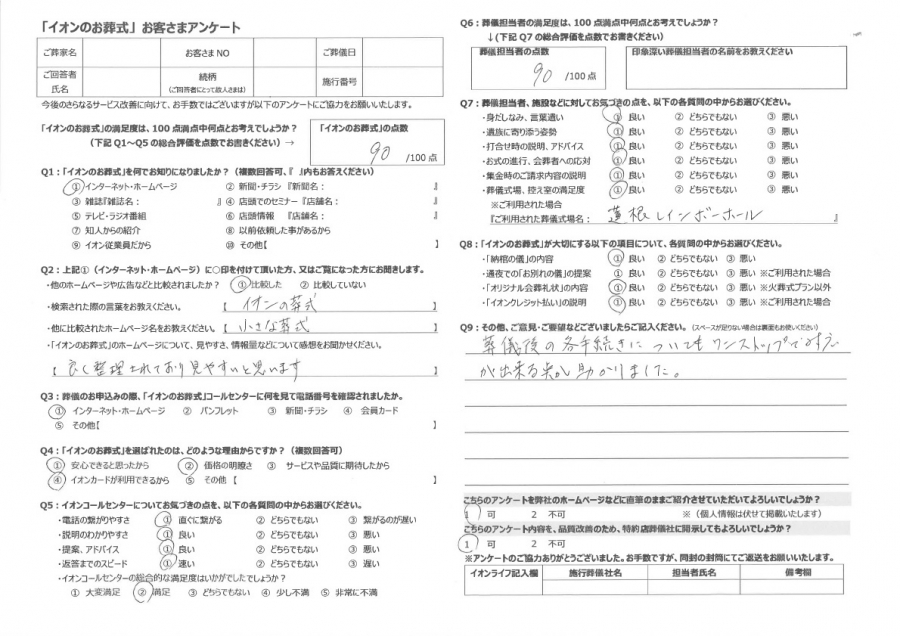 「イオンのお葬式」お客さまアンケート
ご葬家名 お客さまNO ご葬儀日
ご回答者氏名 続柄（ご回答者にとって故人さまは） 施行番号
今後のさらなるサービス改善に向けて、お手数ではございますが以下のアンケートにご協力をお願いいたします。
「イオンのお葬式」の満足度は、100点満点中何点とお考えでしょうか？
（下記Q1～Q5の総合評価を点数でお書きください）→
「イオンのお葬式」の点数
90 /100点
Q1：「イオンのお葬式」を何でお知りになりましたか？（複数回答可、『 』内もお答えください）
①インターネット・ホームページ ② 新聞・チラシ『新聞名： 』
③ 雑誌『雑誌名： 』④ 店頭でのセミナー『店舗名： 』
⑤ テレビ・ラジオ番組 ⑥ 店頭情報 『店舗名： 』
⑦ 知人からの紹介 ⑧ 以前依頼した事があるから
⑨ イオン従業員だから ⑩ その他【 】
Q2：上記①（インターネット・ホームページ）に○印を付けて頂いた方、又はご覧になった方にお聞きします。
・他のホームページや広告などと比較されましたか？ ① 比較した ② 比較していない
・検索された際の言葉をお教えください。 【 イオンの葬式 】
・他に比較されたホームページ名をお教えください。【 小さな葬式 】
・「イオンのお葬式」のホームページについて、見やすさ、情報量などについて感想をお聞かせください。
【 良く整理されており見やすいと思います 】
Q3：葬儀のお申込みの際、「イオンのお葬式」コールセンターに何を見て電話番号を確認されましたか。
① インターネット・ホームページ ② パンフレット ③ 新聞・チラシ ④ 会員カード
⑤ その他【 】
Q4：「イオンのお葬式」を選ばれたのは、どのような理由からですか？（複数回答可）
① 安心できると思ったから ② 価格の明瞭さ ③ サービスや品質に期待したから
④ イオンカードが利用できるから ⑤ その他【 】
Q5：イオンコールセンターについてお気づきの点を、以下の各質問の中からお選びください。
・電話の繋がりやすさ ① 直ぐに繋がる ② どちらでもない ③ 繋がるのが遅い
・説明のわかりやすさ ① 良い ② どちらでもない ③ 悪い
・提案、アドバイス ① 良い ② どちらでもない ③ 悪い
・返答までのスピード ① 速い ② どちらでもない ③ 遅い
・イオンコールセンターの総合的な満足度はいかがでしたでしょうか？
① 大変満足 ② 満足 ③ どちらでもない ④ 少し不満 ⑤ 非常に不満
Q6：葬儀担当者の満足度は、100点満点中何点とお考えでしょうか？
↓（下記Q7の総合評価を点数でお書きください）
葬儀担当者の点数 印象深い葬儀担当者の名前をお教えください
90 /100点
Q7：葬儀担当者、施設などに対してお気づきの点を、以下の各質問の中からお選びください。
・身だしなみ、言葉遣い ① 良い ② どちらでもない ③ 悪い
・遺族に寄り添う姿勢 ① 良い ② どちらでもない ③ 悪い
・打合せ時の説明、アドバイス ① 良い ② どちらでもない ③ 悪い
・お式の進行、会葬者への応対 ① 良い ② どちらでもない ③ 悪い
・集金時のご請求内容の説明 ① 良い ② どちらでもない ③ 悪い
・葬儀式場、控え室の満足度 ① 良い ② どちらでもない ③ 悪い
※ご利用された場合
『ご利用された葬儀式場名： 蓮根レインボーホール 』
Q8：「イオンのお葬式」が大切にする以下の項目について、各質問の中からお選びください。
・「納棺の儀」の内容 ① 良い ② どちらでもない ③ 悪い
・通夜での「お別れの儀」の提案 ① 良い ② どちらでもない ③ 悪い ※ご利用された場合
・「オリジナル会葬礼状」の内容 ① 良い ② どちらでもない ③ 悪い ※火葬式プラン以外
・「イオンクレジット払い」の説明 ① 良い ② どちらでもない ③ 悪い ※ご利用された場合
Q9：その他、ご意見・ご要望などございましたらご記入ください。（スペースが足りない場合は裏面もお使いください）
葬儀後の各手続きについてもワンストップで
が出来る点が助かりました。
こちらのアンケートを弊社のホームページなどに直筆のままご紹介させていただいてよろしいでしょうか？
1 可 2 不可 ※（個人情報は伏せて掲載いたします）
こちらのアンケート内容を、品質改善のため、特約店葬儀社に開示してもよろしいでしょうか？
1 可 2 不可
※アンケートのご協力ありがとうございました。お手数ですが、同封の封筒にてご返送をお願いいたします。
イオンライフ記入欄 施行葬儀社名 担当者氏名 備考欄